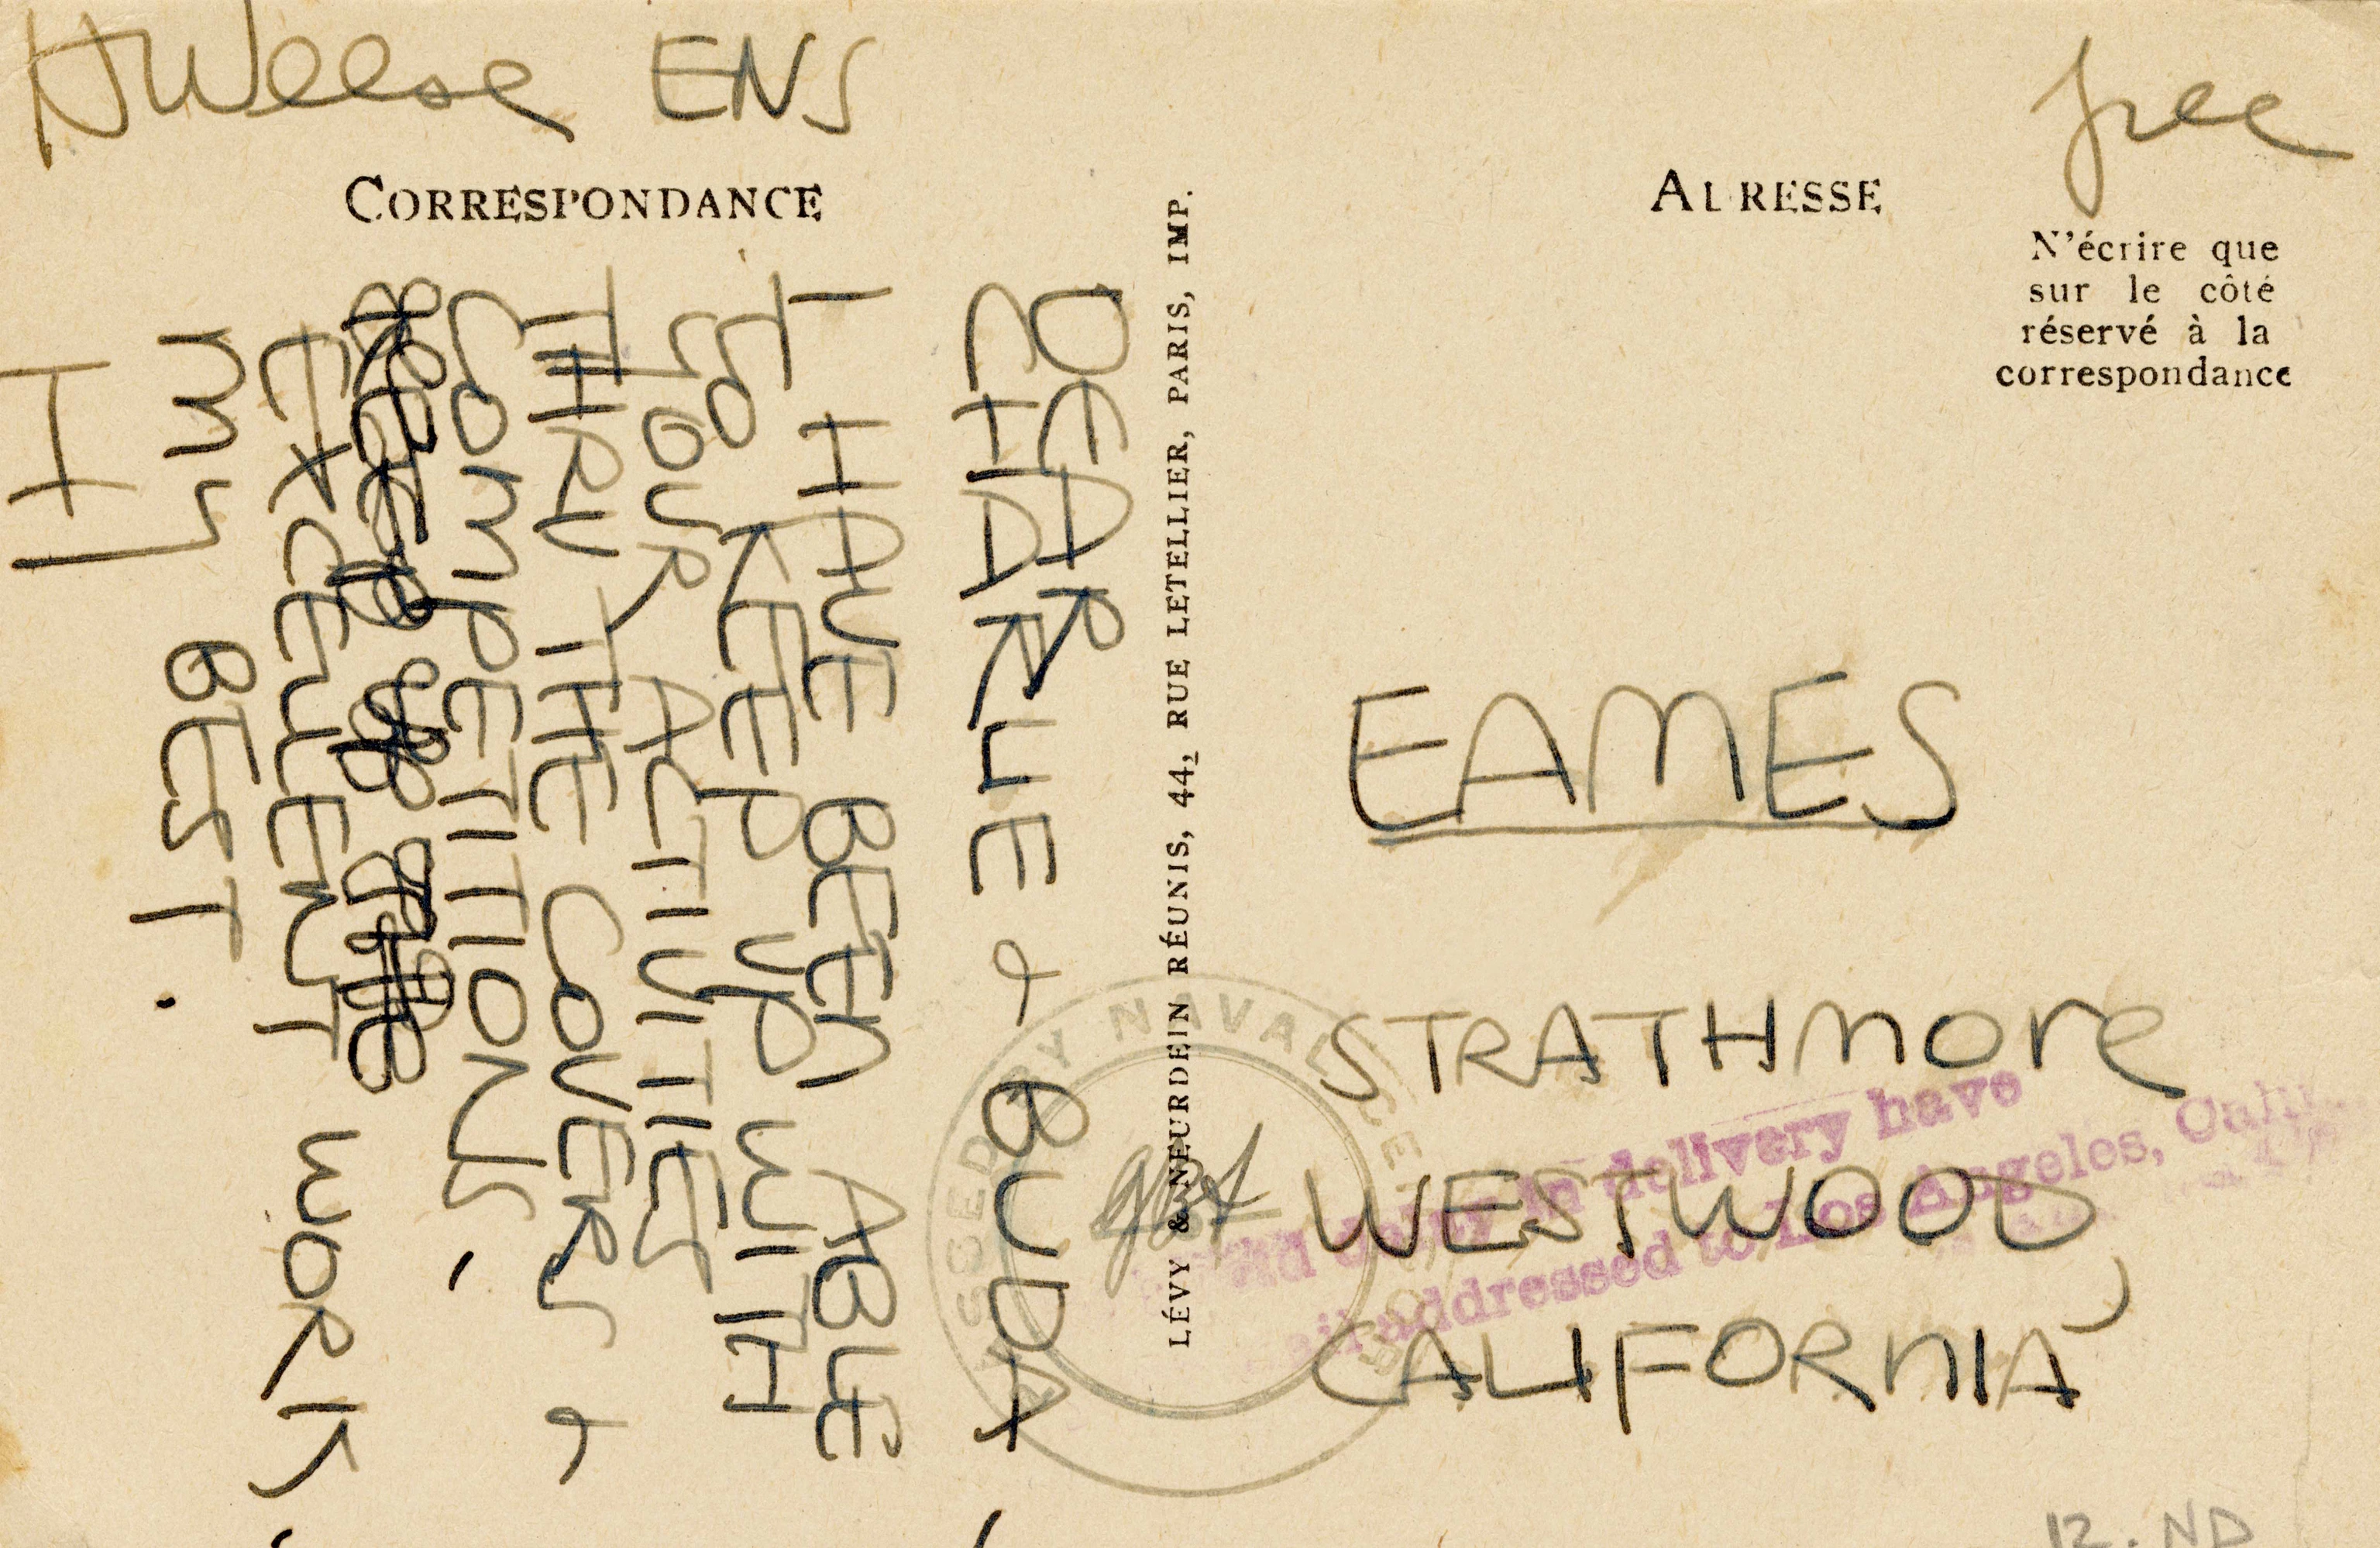 HWeese ENS
free
CORRESPONDANCE
DEAR
CHARLIE &
I HAVE BEEN ABLE
TO KEEP UP WITH
YOUR ACTIVITIES
THRU THE COVERS &
COMPETITIONS.
EXCELLENT WORK.
MY BEST.
H
LÉVY & NEURDEIN RÉUNIS, 44, RUE LETELLIER, PARIS, IMP.
ADRESSE
N'écrire que
sur le côté
réservé à la
correspondance
EAMES
STRATHMORE
WESTWOOD,
CALIFORNIA
PASSED BY NAVAL CENSOR
delay in delivery have
addressed to Los Angeles,
12. ND